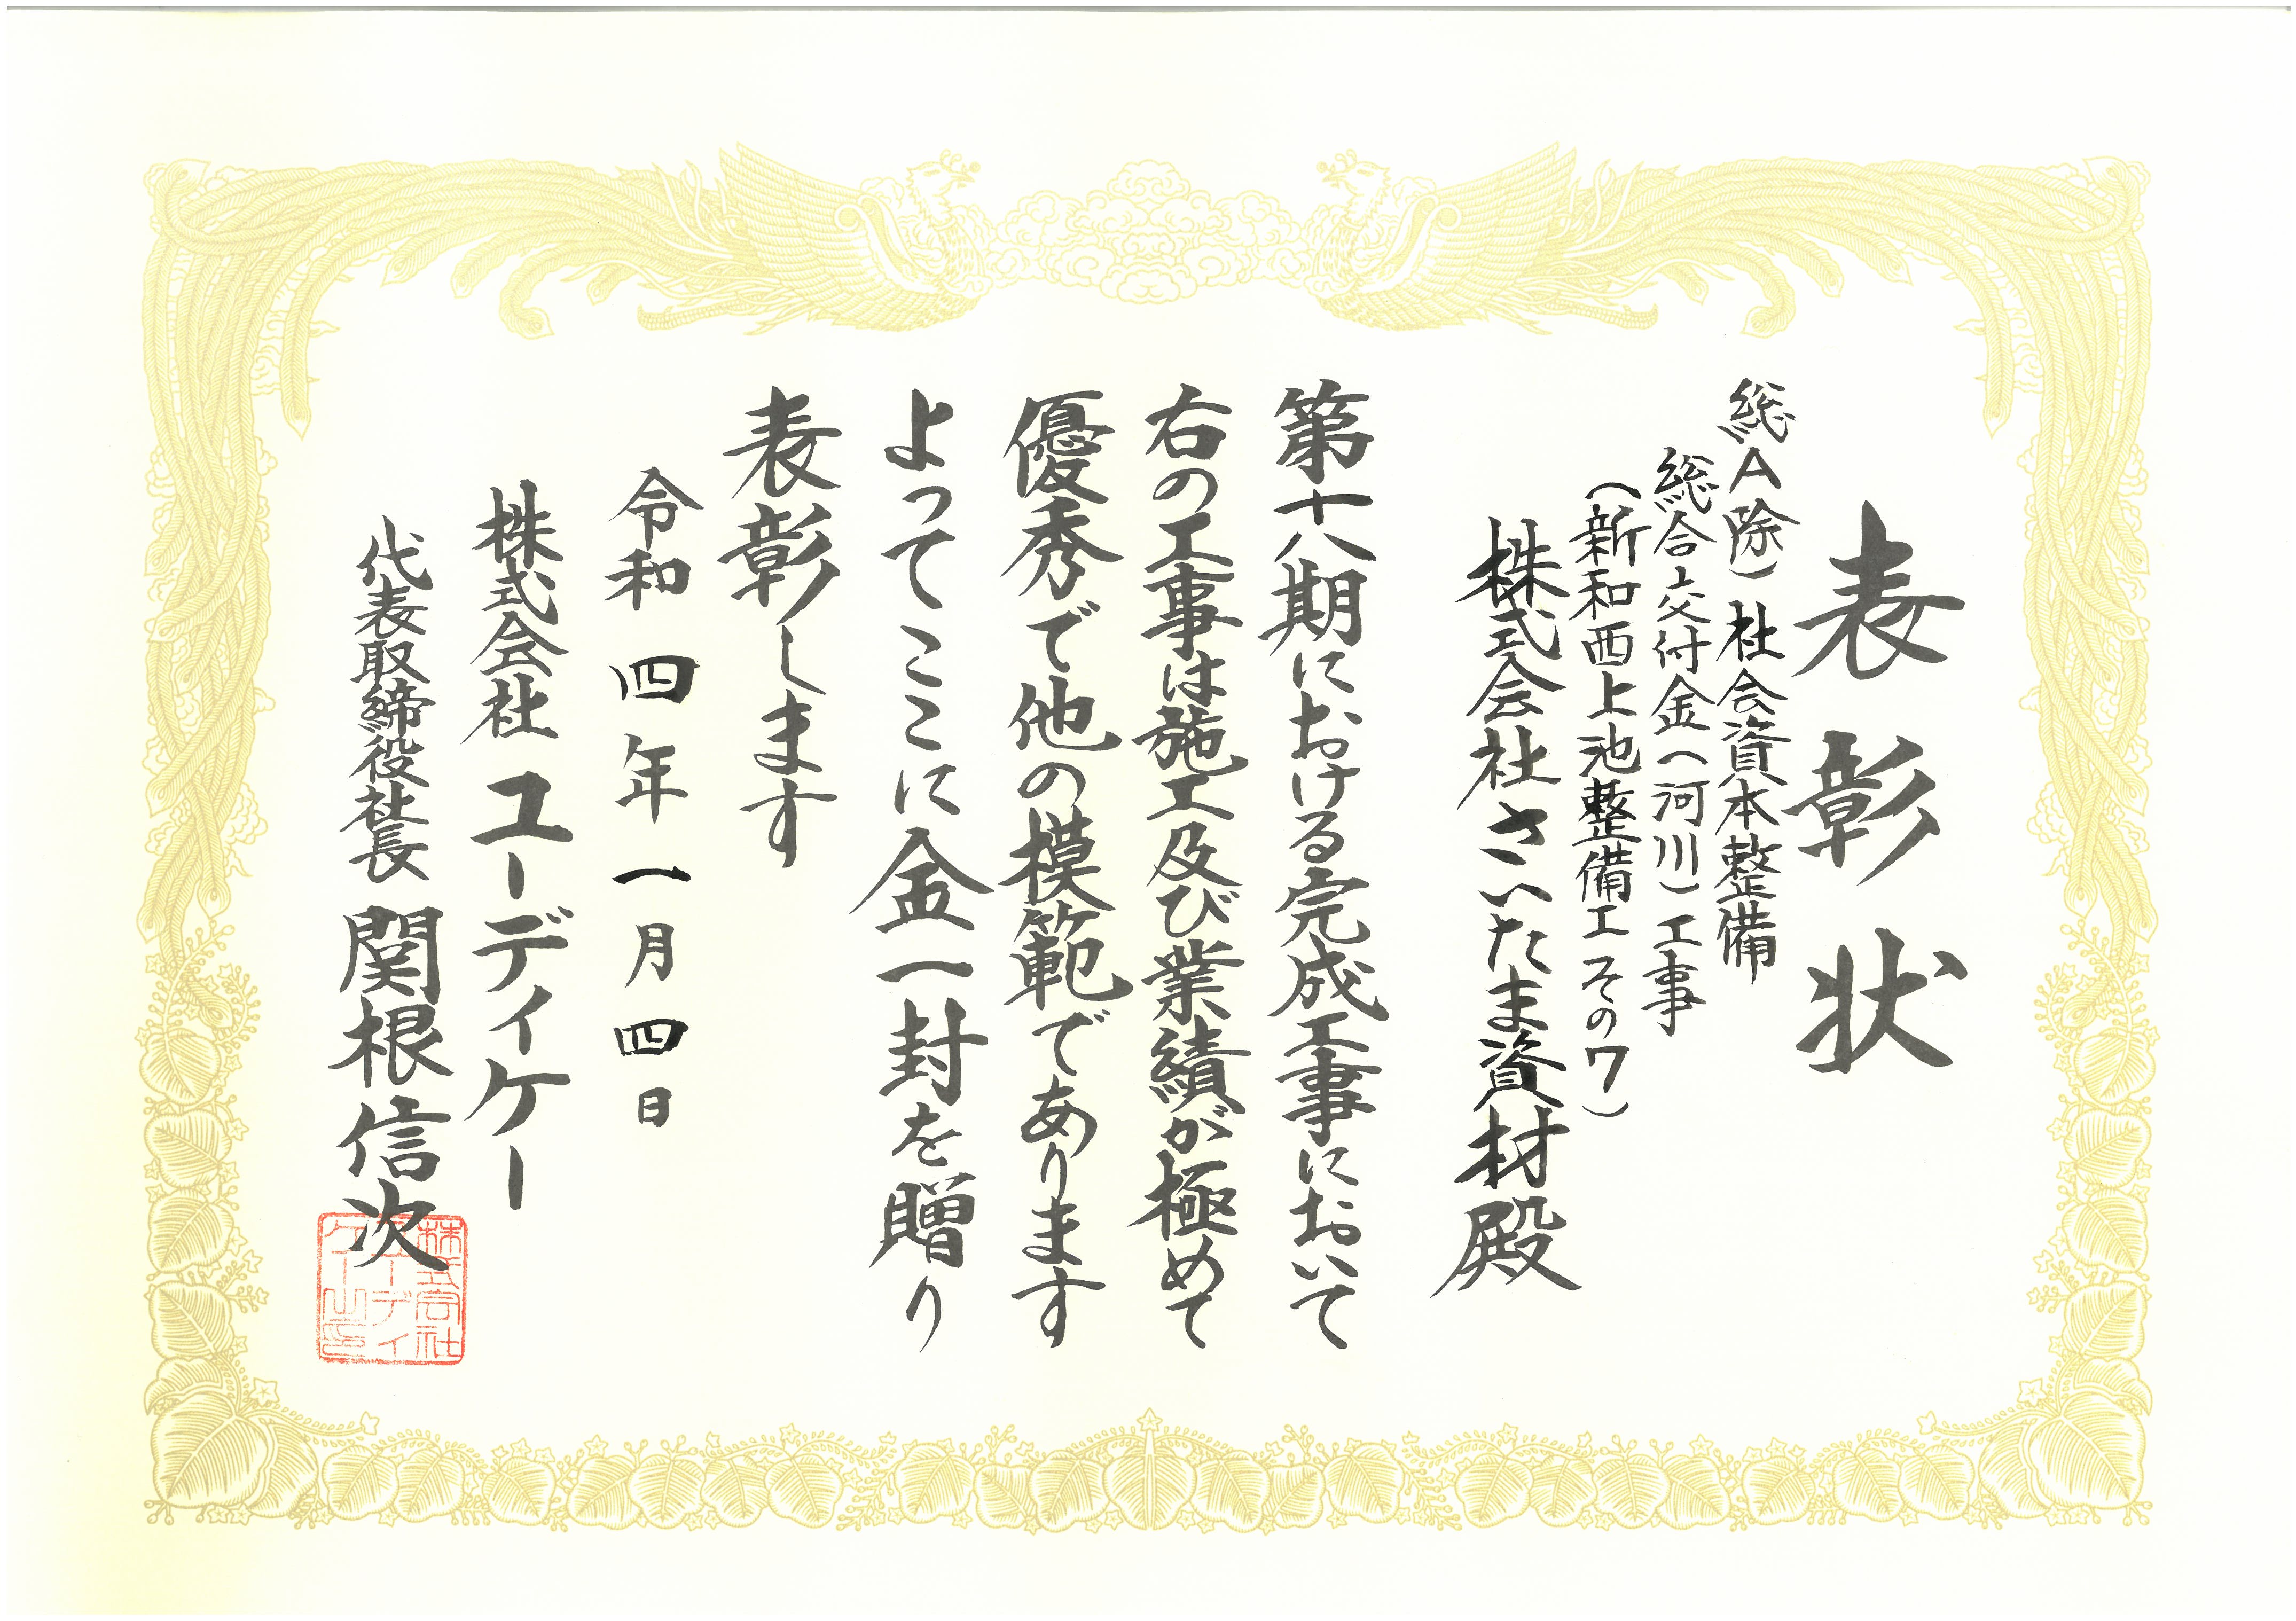 表彰状
総A除）社会資本整備
総合交付金（河川）工事
（新和西上池整備工その7）
株式会社さいたま資材殿
第十八期における完成工事において
右の工事は施工及び業績が極めて
優秀で他の模範であります
よってここに金一封を贈り
表彰します
令和四年一月四日
株式会社ユーディケー
代表取締役社長 関根信次
株式会社
ユーディ
ケー山印